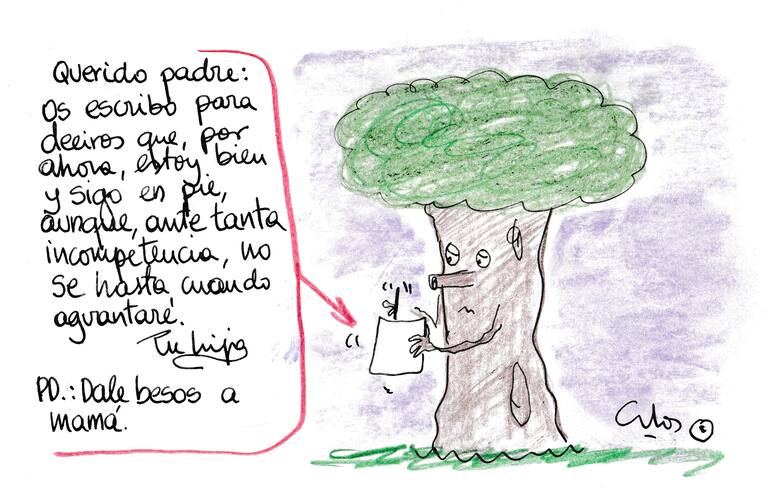 Querido padre:
Os escribo para
deciros que, por
ahora, estoy bien
y sigo en pie,
aunque, ante tanta
incompetencia, no
se hasta cuando
aguantaré.
Tu hijo
PD.: Dale besos a
mamá.